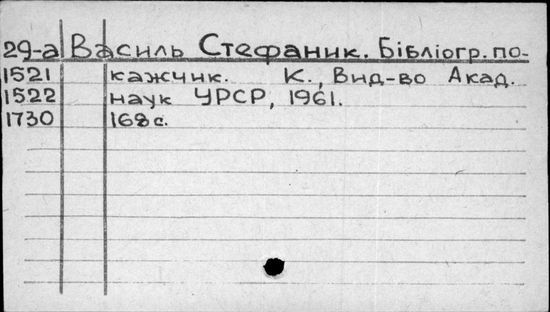 29-а Василь Стефаник. Бібліогр. по-
1521 кажчик. К., Вид-во Акад.
1522 наук УРСР, 1961.
1730 168 с.